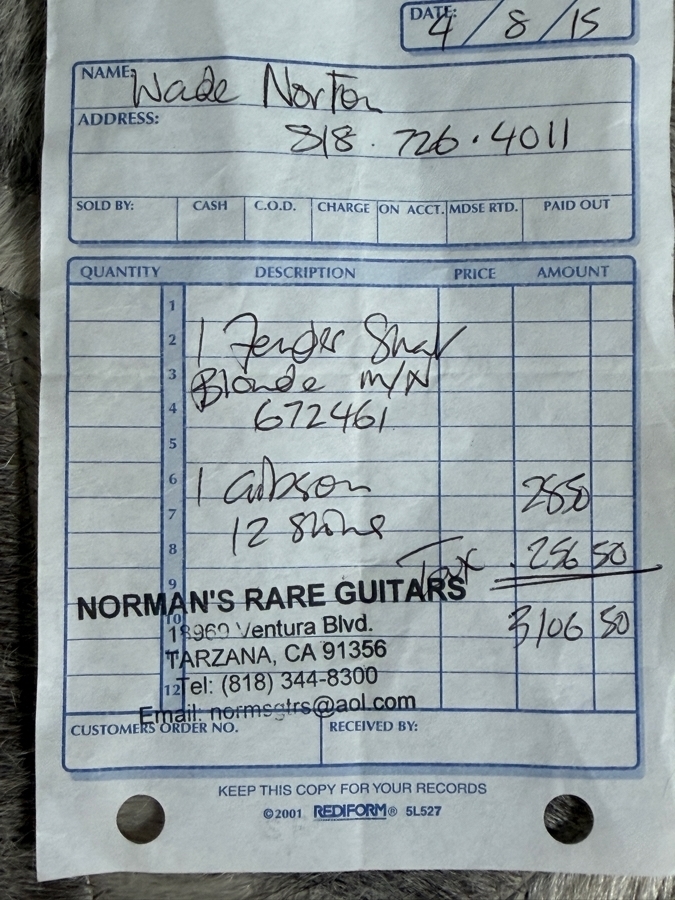 DATE: 4/8/15
NAME: Wade Norton
ADDRESS:
818.726.4011
SOLD BY: CASH C.O.D. CHARGE ON ACCT. MDSE RTD. PAID OUT
QUANTITY DESCRIPTION PRICE AMOUNT
1
2 1 Fender Strat
3 Blonde M/N
4 672461
5
6 1 Gibson 2850
7 12 String
8 Tax 256 50
9
NORMAN'S RARE GUITARS
10 3106 50
18969 Ventura Blvd.
TARZANA, CA 91356
12 Tel: (818) 344-8300
Email: normsgtrs@aol.com
CUSTOMERS ORDER NO. RECEIVED BY:
KEEP THIS COPY FOR YOUR RECORDS
©2001 REDIFORM® 5L527